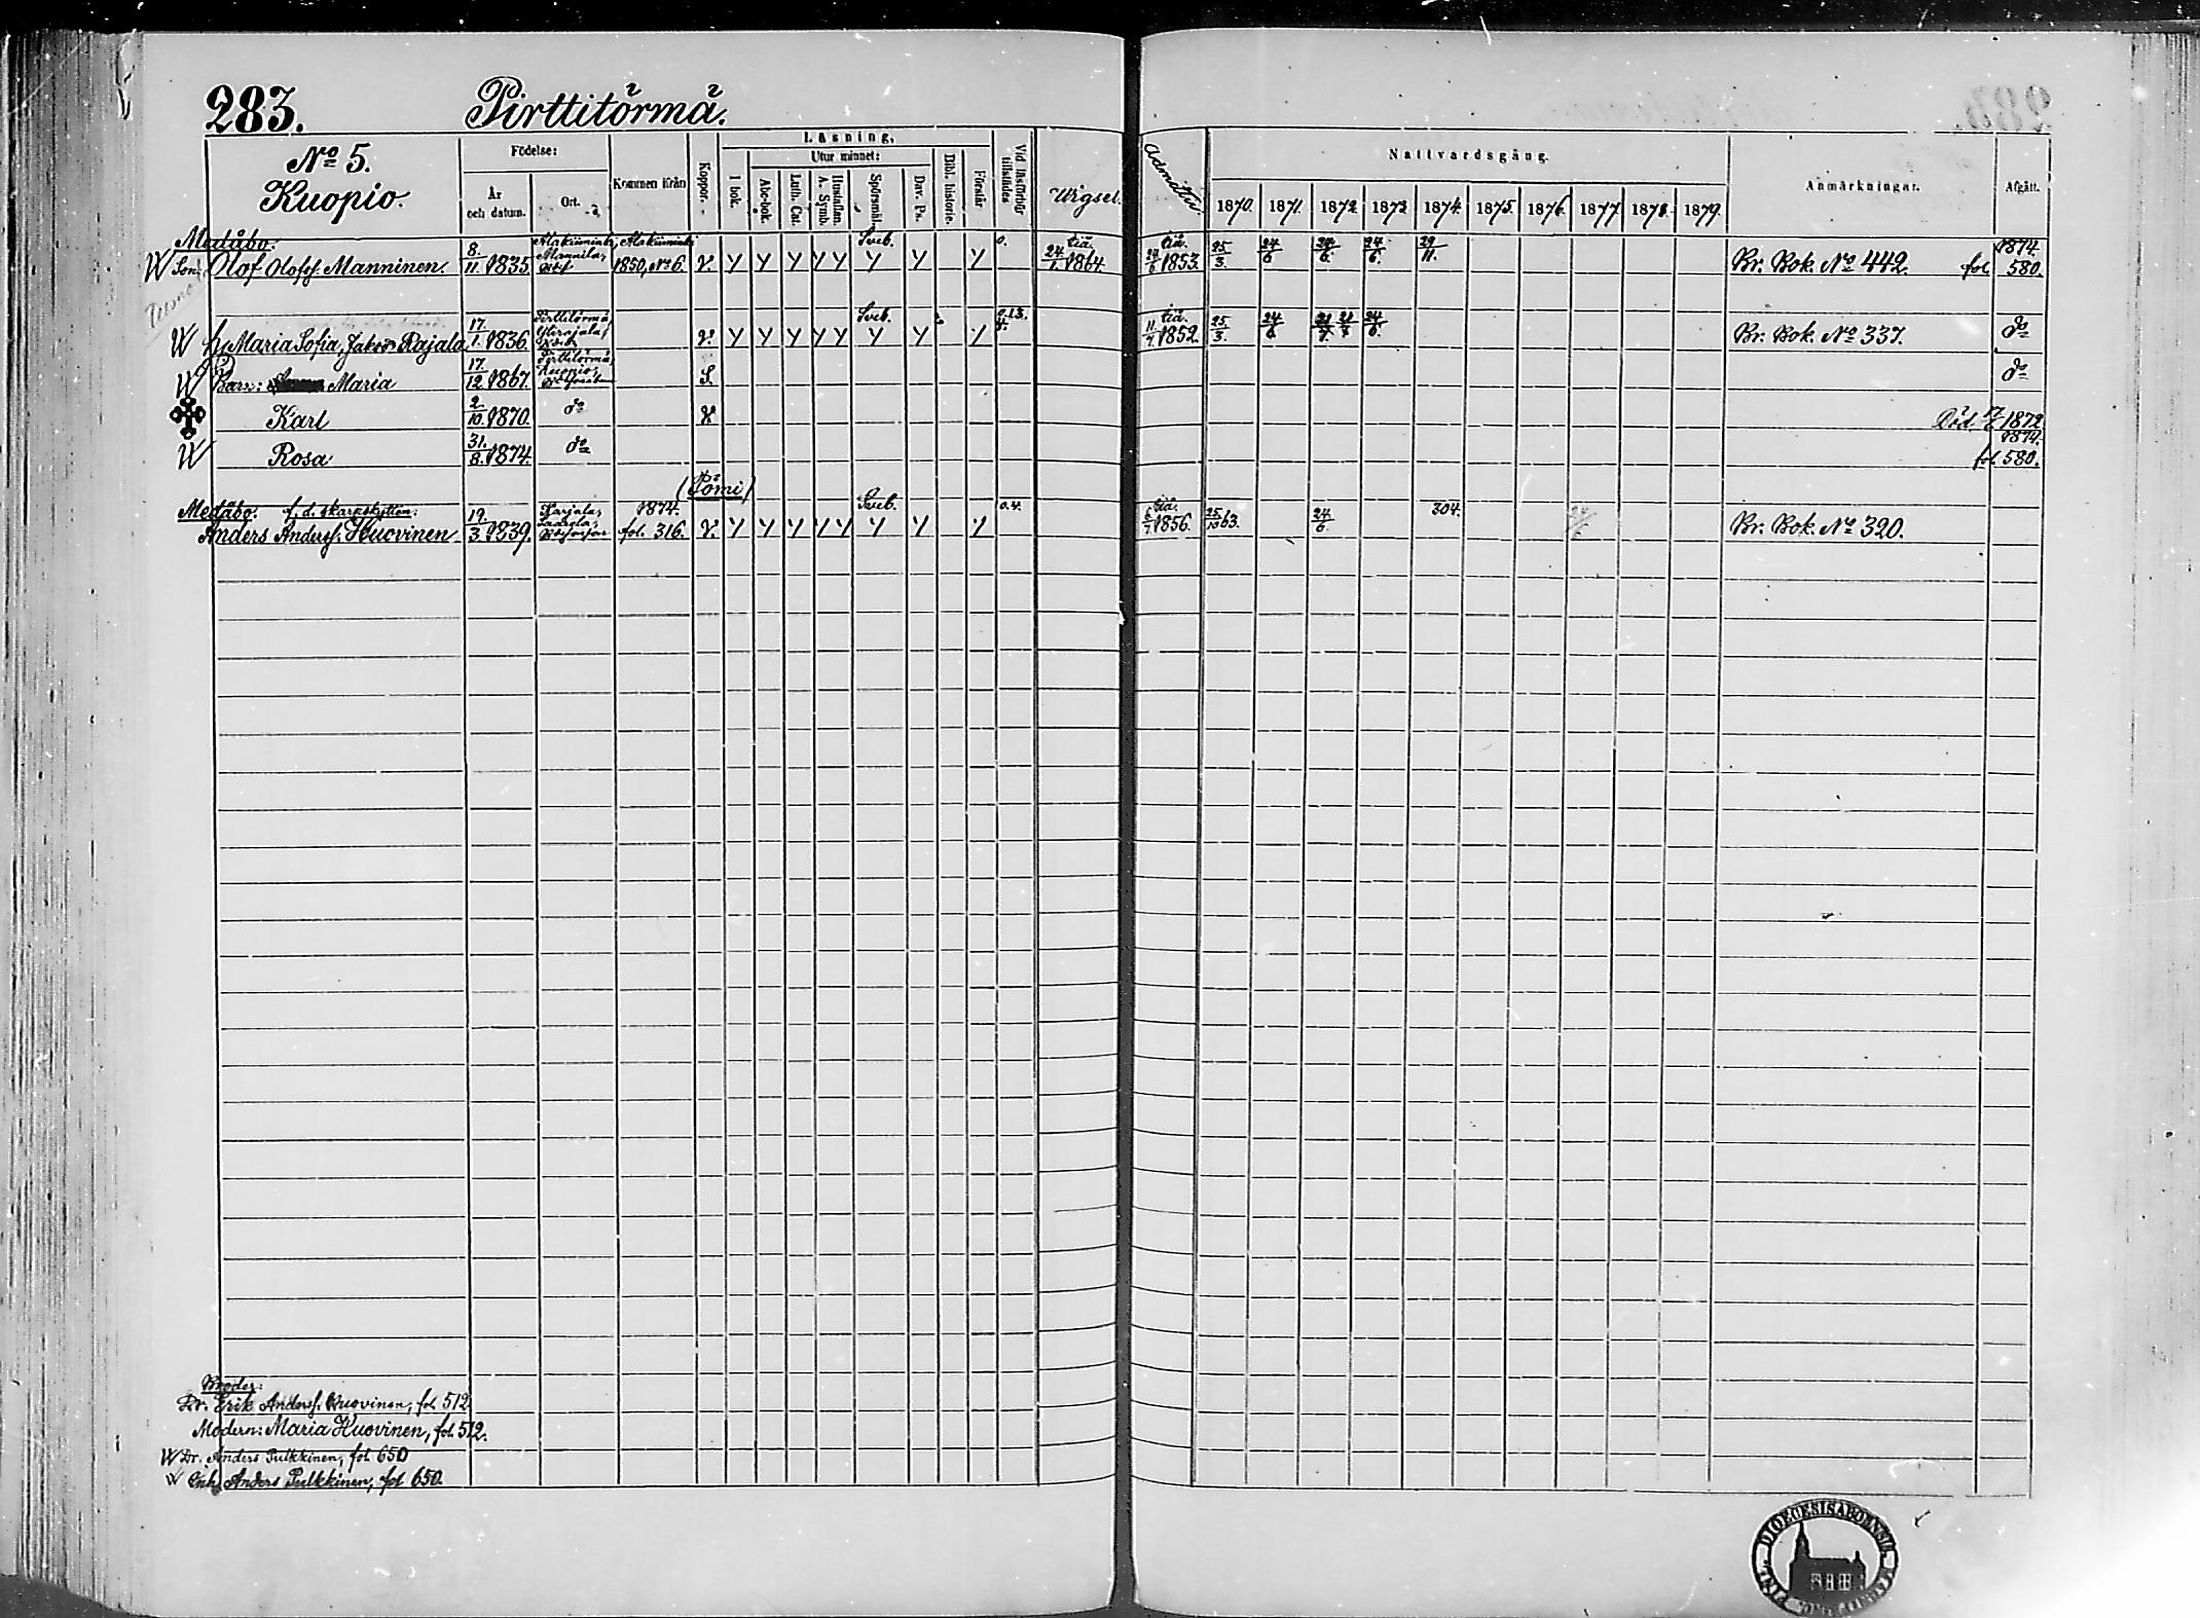 283. Pirttitörmä.
No 5.
Kuopio.
Födelse:
År och datum.
Ort.
Kommen ifrån
Koppor.
Läsning.
I bok.
Utur minnet:
Abc-bok.
Luth. Cat.
Hustaflan. A. Symb.
Spörsmål.
Dav. Ps.
Bibl. historie.
Förstår
Vid läsförhör tillstädes
Wigsel.
Admitter.
Nattvardsgång.
1870. 1871. 1872. 1873. 1874. 1875. 1876. 1877. 1878. 1879.
Anmärkningar.
Afgått.
Medåbo.
W Son: Olaf Olofsf. Manninen. 8/11 1835. Alakiiminki, Mannila, Alakiiminki 1850, No 6. v. Sveb. 24/1 1864. 24/6 1853. 25/3. 24/6 24/6. 24/6. 29/11. Br. Bok. No 442. 1874. fol 580.
W h. Maria Sofia, Jakobs Rajala 17/1. 1836. Pirttitörmä, Ylirajala, v. Sveb. 1852. 25/3. 24/6 24/6. Br. Bok. No 337. do
W Barn: Maria 17/12 1867. Pirttitörmä, Kuopio, S. do
Karl 2/10. 1870. do Död 1872
W Rosa 31/8. 1874. do 1874. fol 580.
(Tömi)
Medåbo. f. d. skarpskytten:
Anders Andersf. Huovinen 19/3. 1839. Karjala, 1874. fol. 316. v. Sveb. 0.4. 1856. 25/10 63. 24/6. 304. Br. Bok. No 320.
Broder:
Dr. Erik Andersf. Huovinen, fol 512
Modern: Maria Huovinen, fol 512.
W Dr. Anders Pulkkinen, fol 650
Enh. Anders Pulkkinen, fol 650.